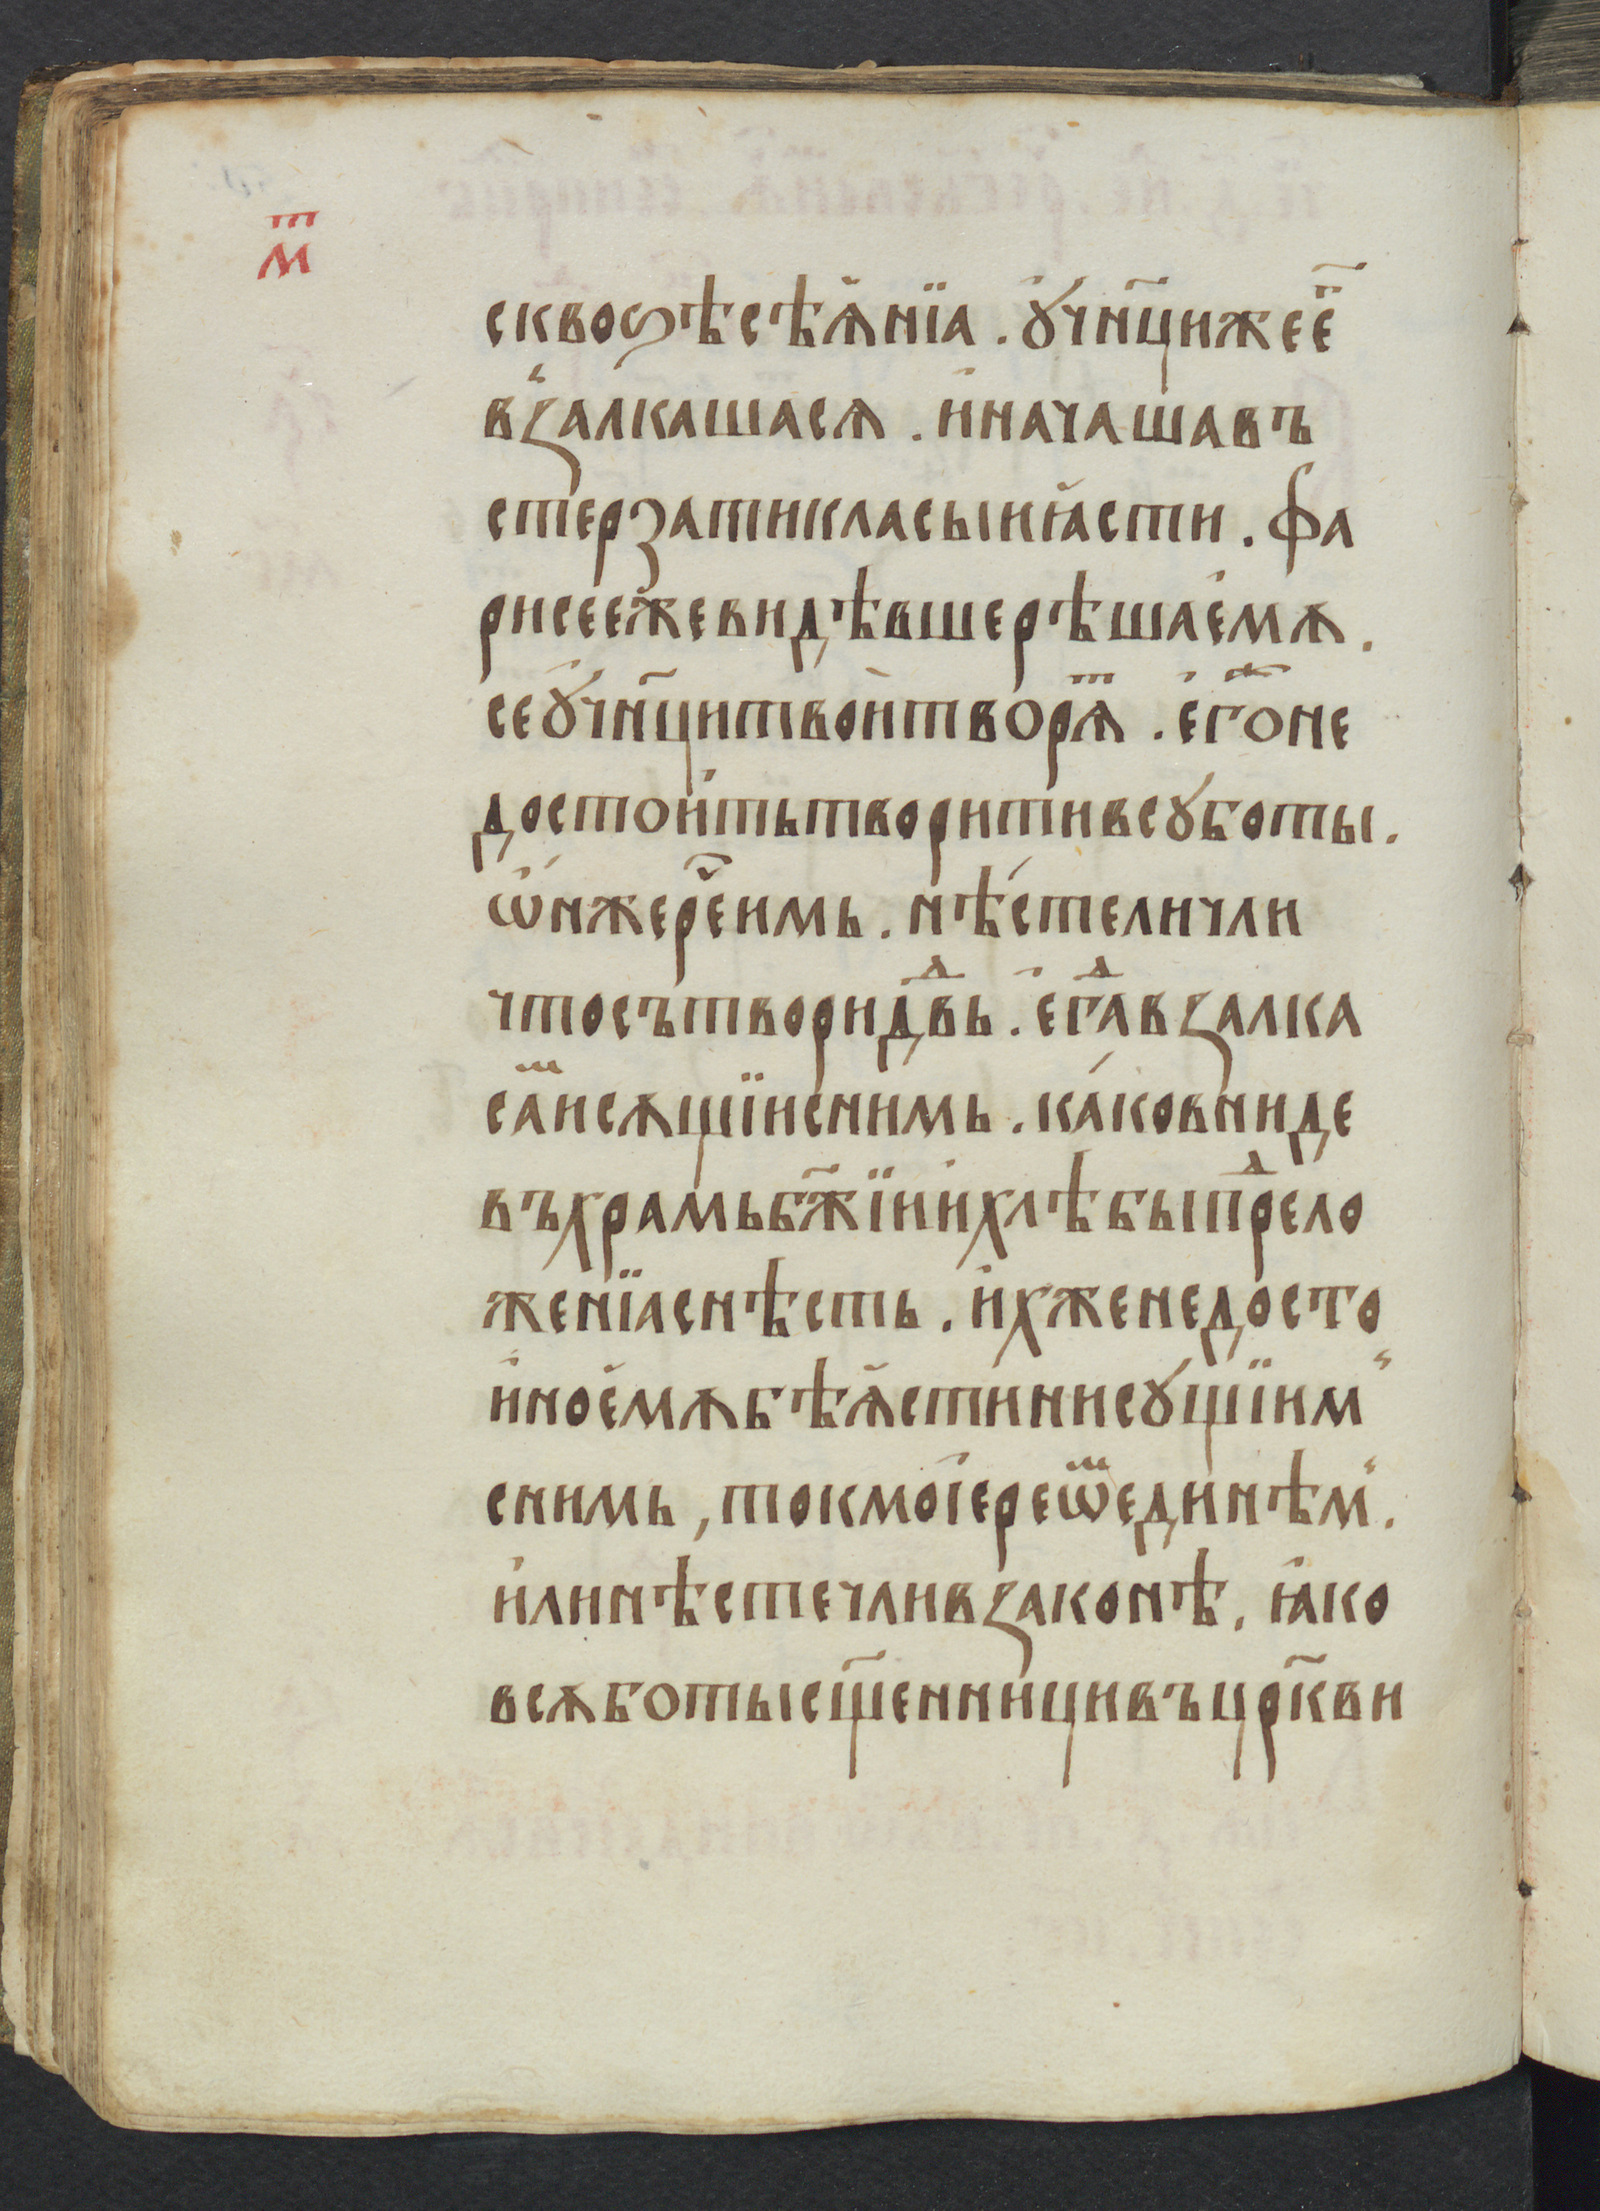 м҃ⷮ
сквоѕѣсѣѧ҆нїа . ꙋ҆чн҃цижеє҆҃
вⸯꙁалкашасѧ . и҆начашавъ
стерзатикласыиꙗ҆сти . фа
рисеєжⷤевидѣвшерѣшае҆мѫ .
сеꙋ҆чн҃цитвои҆творѧⷮ . е҆гоⷤне
достои҆тьтворитивсꙋботы .
ѡ҆нжереⷱ҇имь . нѣ́стеличли
чтосътвориⷣвь . е҆гаⷣвꙁалка
саⷨисѫщїиснимь . ка́ковниде
въхрамьбж҃їии҆хлѣбыпⷣрело
женїаснѣсть . и҆хженедосто
и҆ное҆мѫбѣѧ҆стинисꙋщїимⸯ
снимь , токмоі҆ереѡ҆ⷨединѣмⸯ .
и҆линѣстечливꙁаконѣ . ꙗ҆ко
всѫботысщ҃енницивъцр҃кви